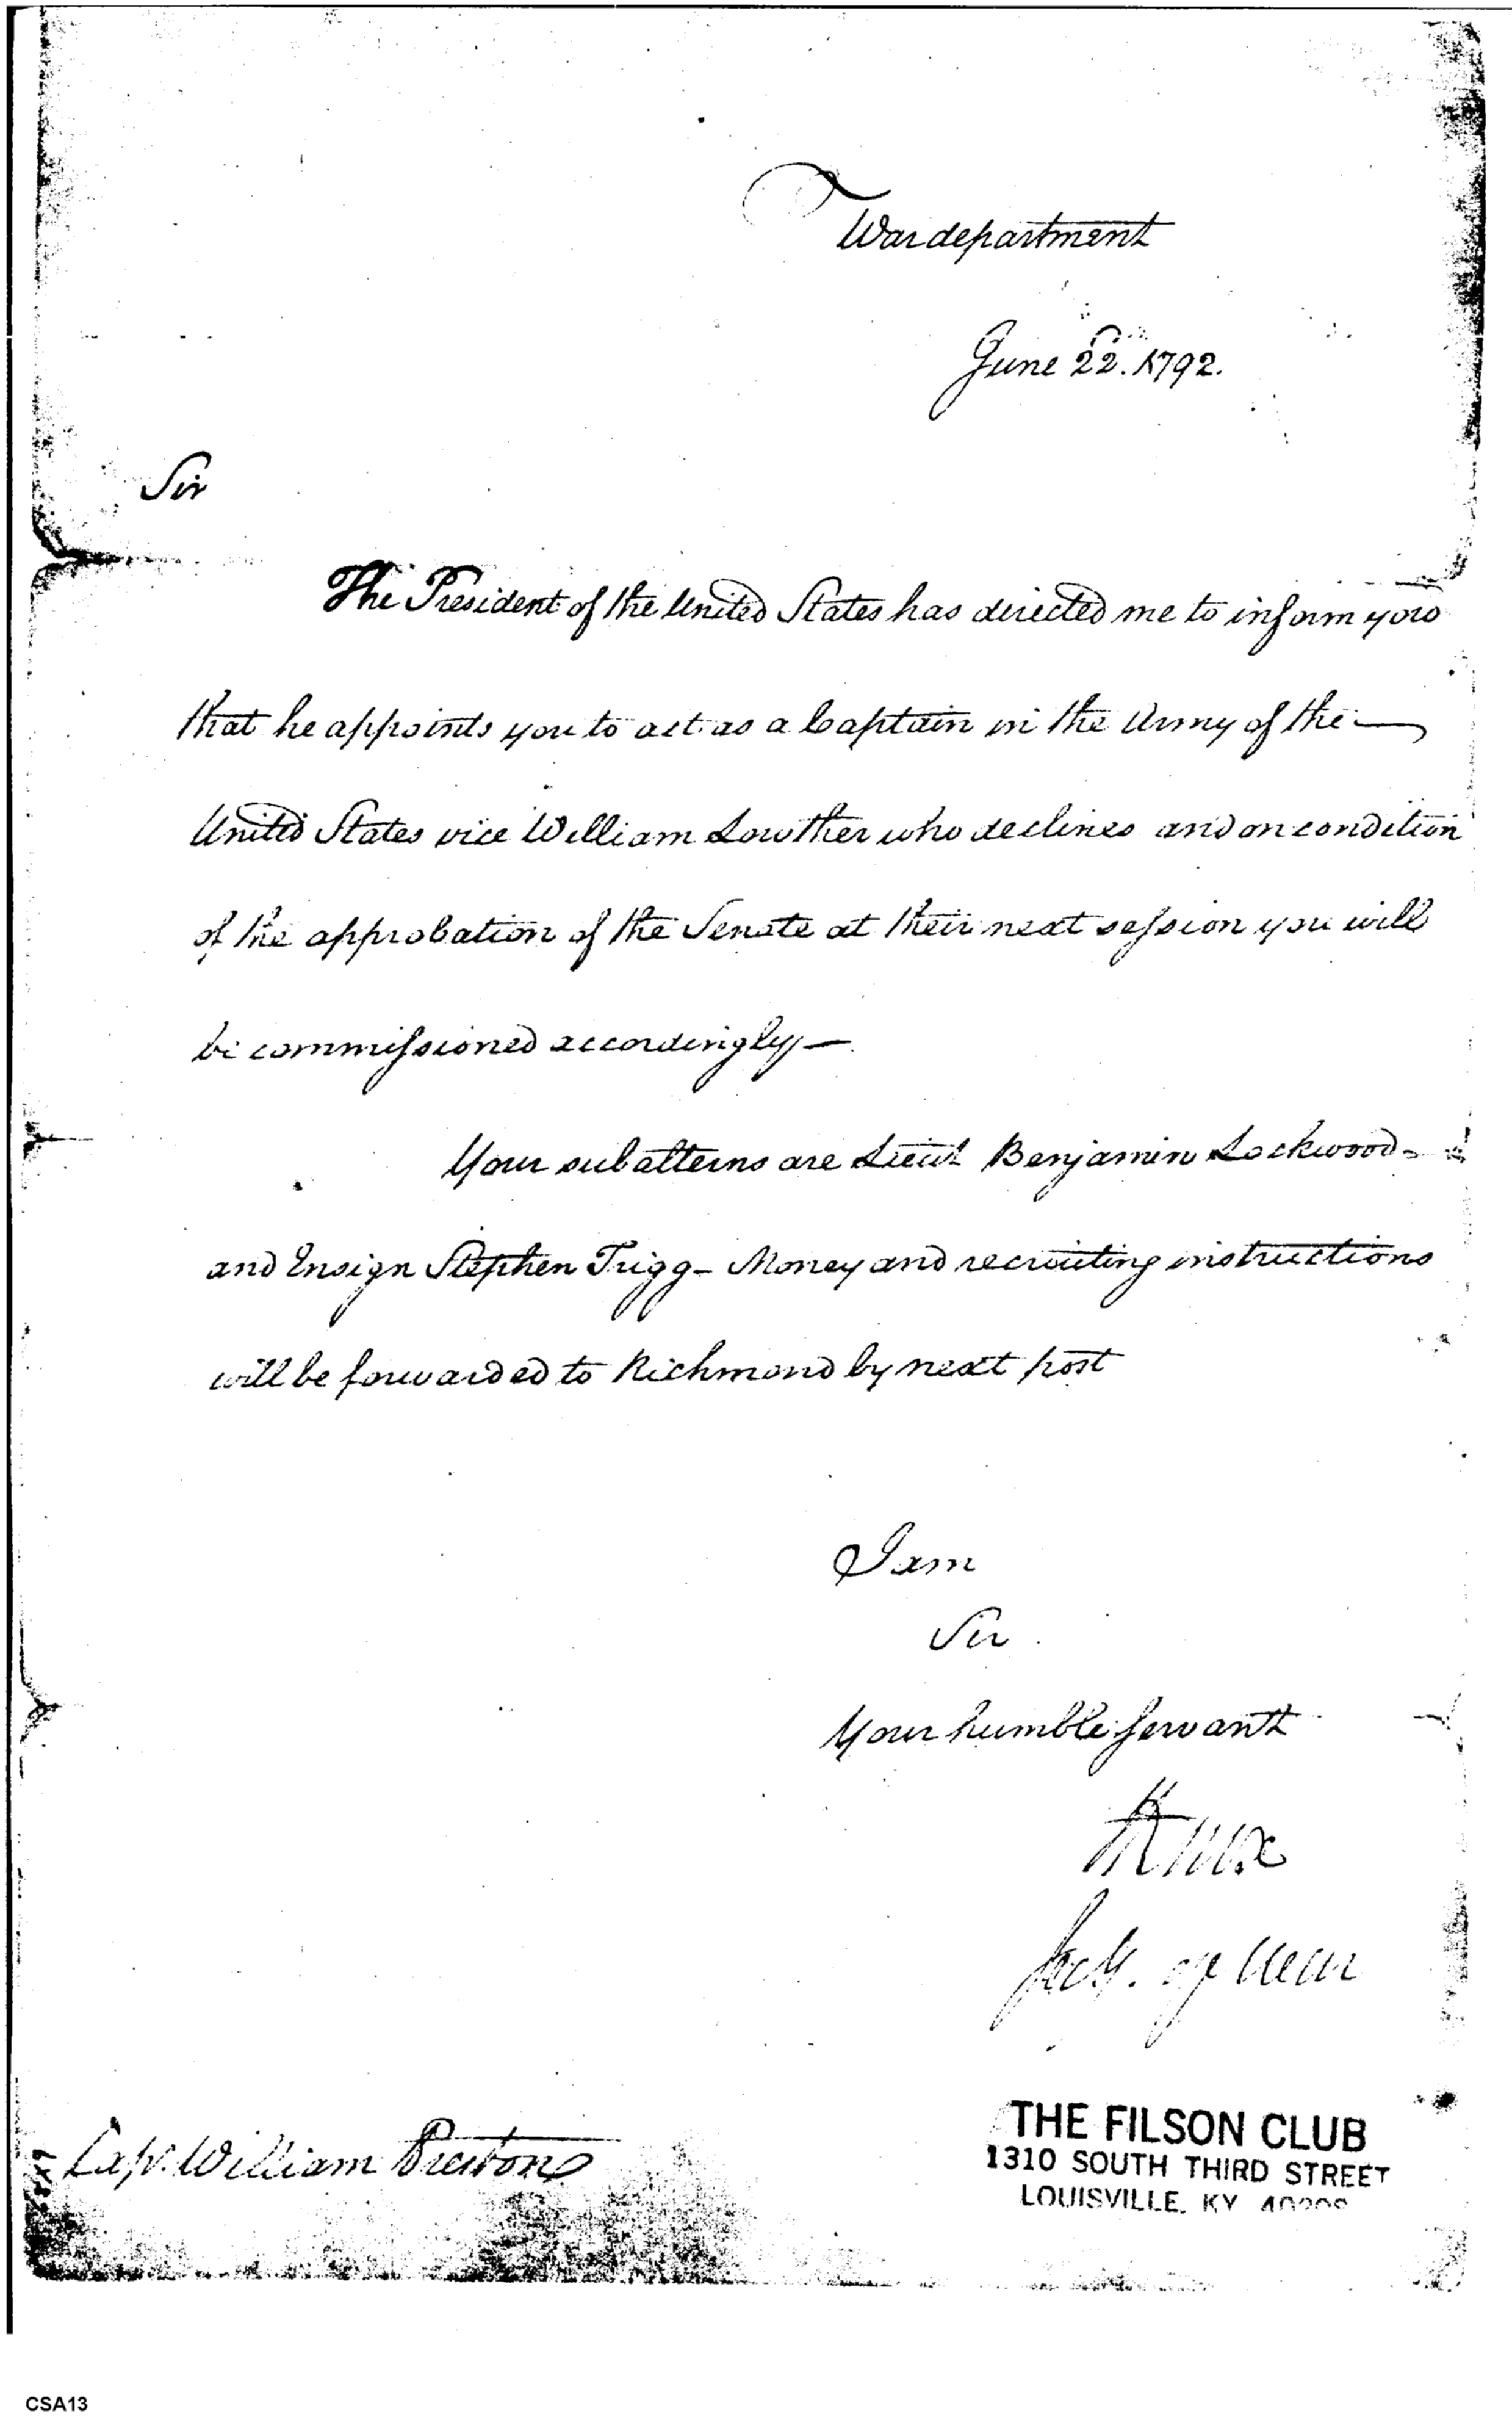 War department
June 22. 1792.
Sir
The President of the United States has directed me to inform you
that he appoints you to act as a Captain in the Army of the —
United States vice William Lowther who declines and on condition
of the approbation of the Senate at their next session you will
be commissioned accordingly —
Your subalterns are Lieut Benjamin Lockwood -
and Ensign Stephen Trigg - Money and recruiting instructions
will be forwarded to Richmond by next post
I am
Sir
Your humble servant
HKnox
Secy. of War
Cap. William Preston
THE FILSON CLUB
1310 SOUTH THIRD STREET
LOUISVILLE, KY
CSA13